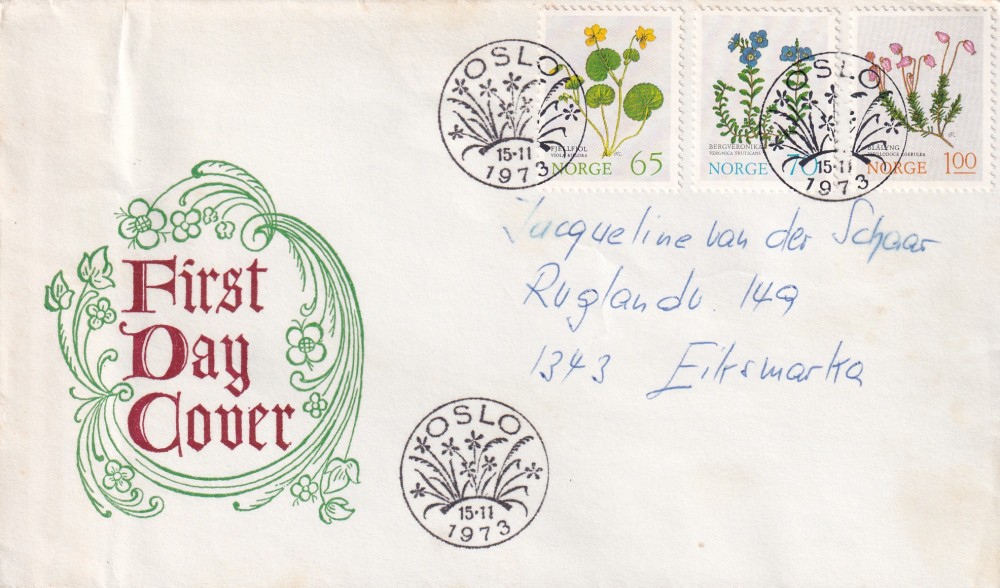 OSLO
15·11
1973
FJELLFIOL
VIOLA BIFLORA
NORGE 65
BERGVERONIKA
VERONICA FRUTICANS
NORGE 70
OSLO
15·11
1973
BLÅLYNG
PHYLLODOCE COERULEA
NORGE 1.00
Jacqueline van der Schaar
Ruglandv. 149
1343 Eiksmarka
First
Day
Cover
OSLO
15·11
1973